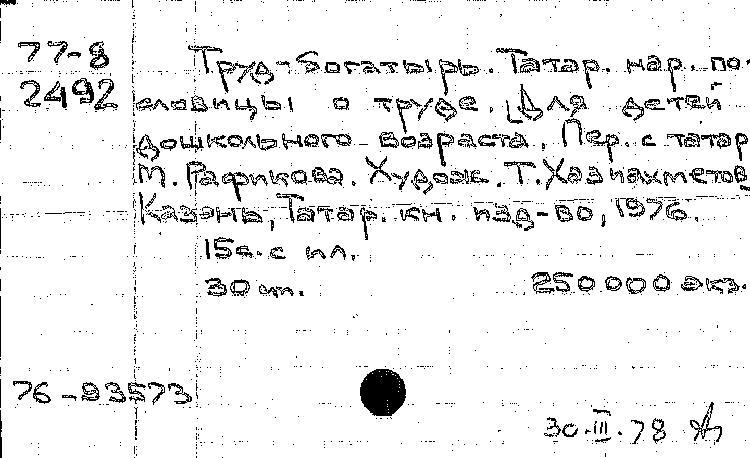 77-8 Труд-богатырь. Татар. нар. по-
2492 словицы о труде. [Для детей
дошкольного возраста. Пер. с татар
М. Рафикова. Худож. Т. Хазиахметов]
Казань, Татар. кн. изд-во, 1976.
15 с. с ил.
30 см. 250 000 экз.
76-93573
30.III.78